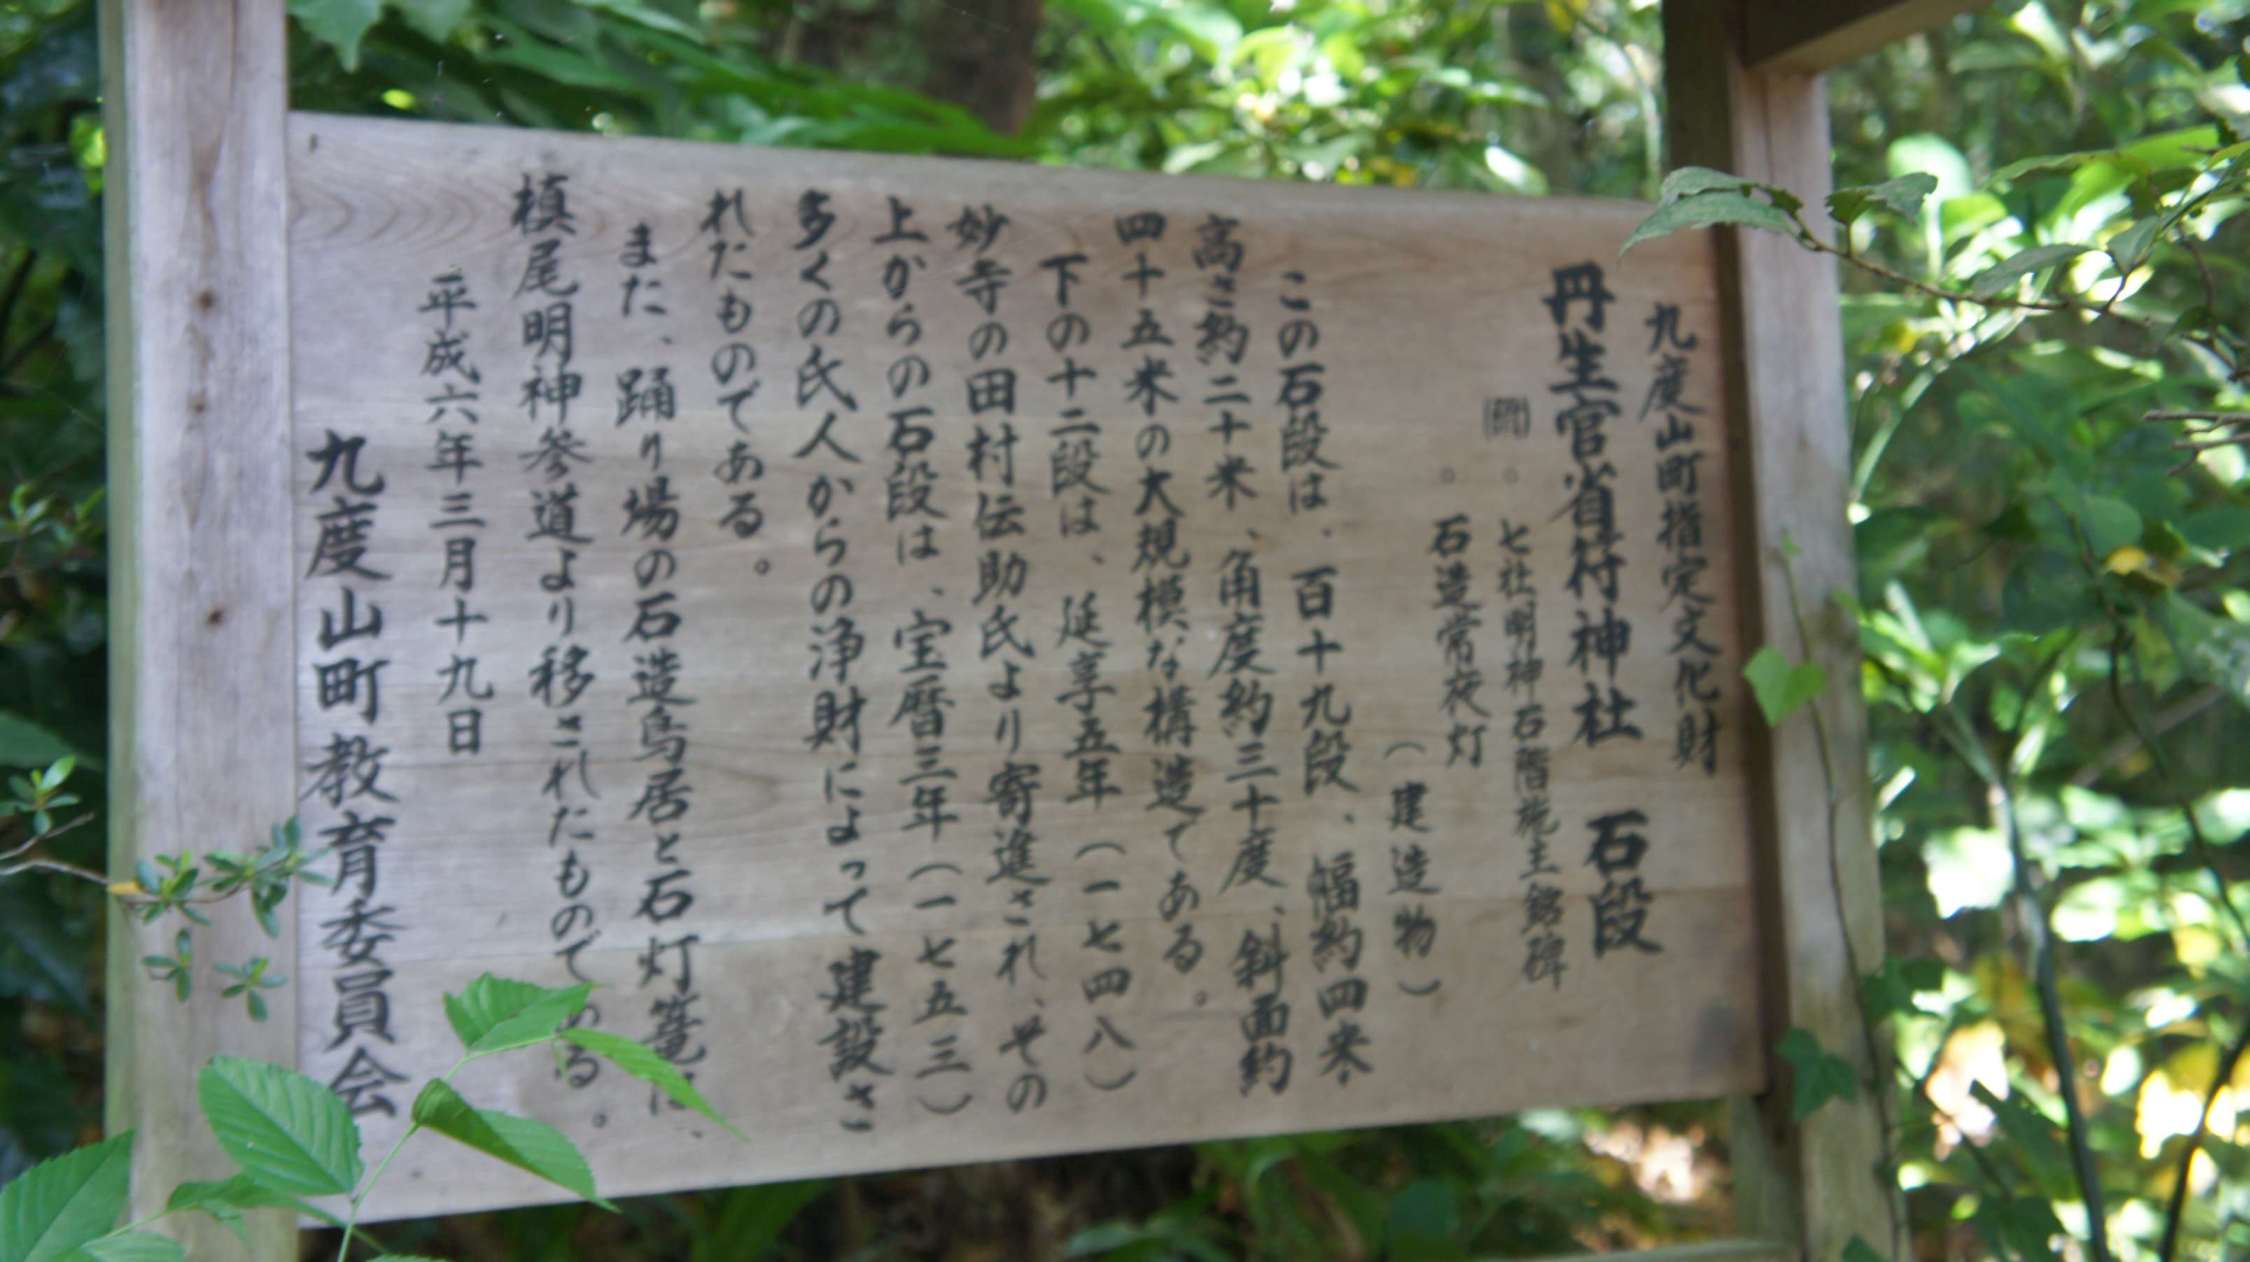 九度山町指定文化財
丹生官省符神社　石段
。七社明神石階施主銘碑
。石造常夜灯
（建造物）
この石段は、百十九段、幅約四米、
高さ約二十米、角度約三十度、斜面約
四十五米の大規模な構造である。
下の十二段は、延享五年（一七四八）
妙寺の田村伝助氏より寄進され、その
上からの石段は、宝暦三年（一七五三）
多くの氏人からの浄財によって建設さ
れたものである。
また、踊り場の石造鳥居と石灯篭は、
槙尾明神参道より移されたものである。
平成六年三月十九日
九度山町教育委員会